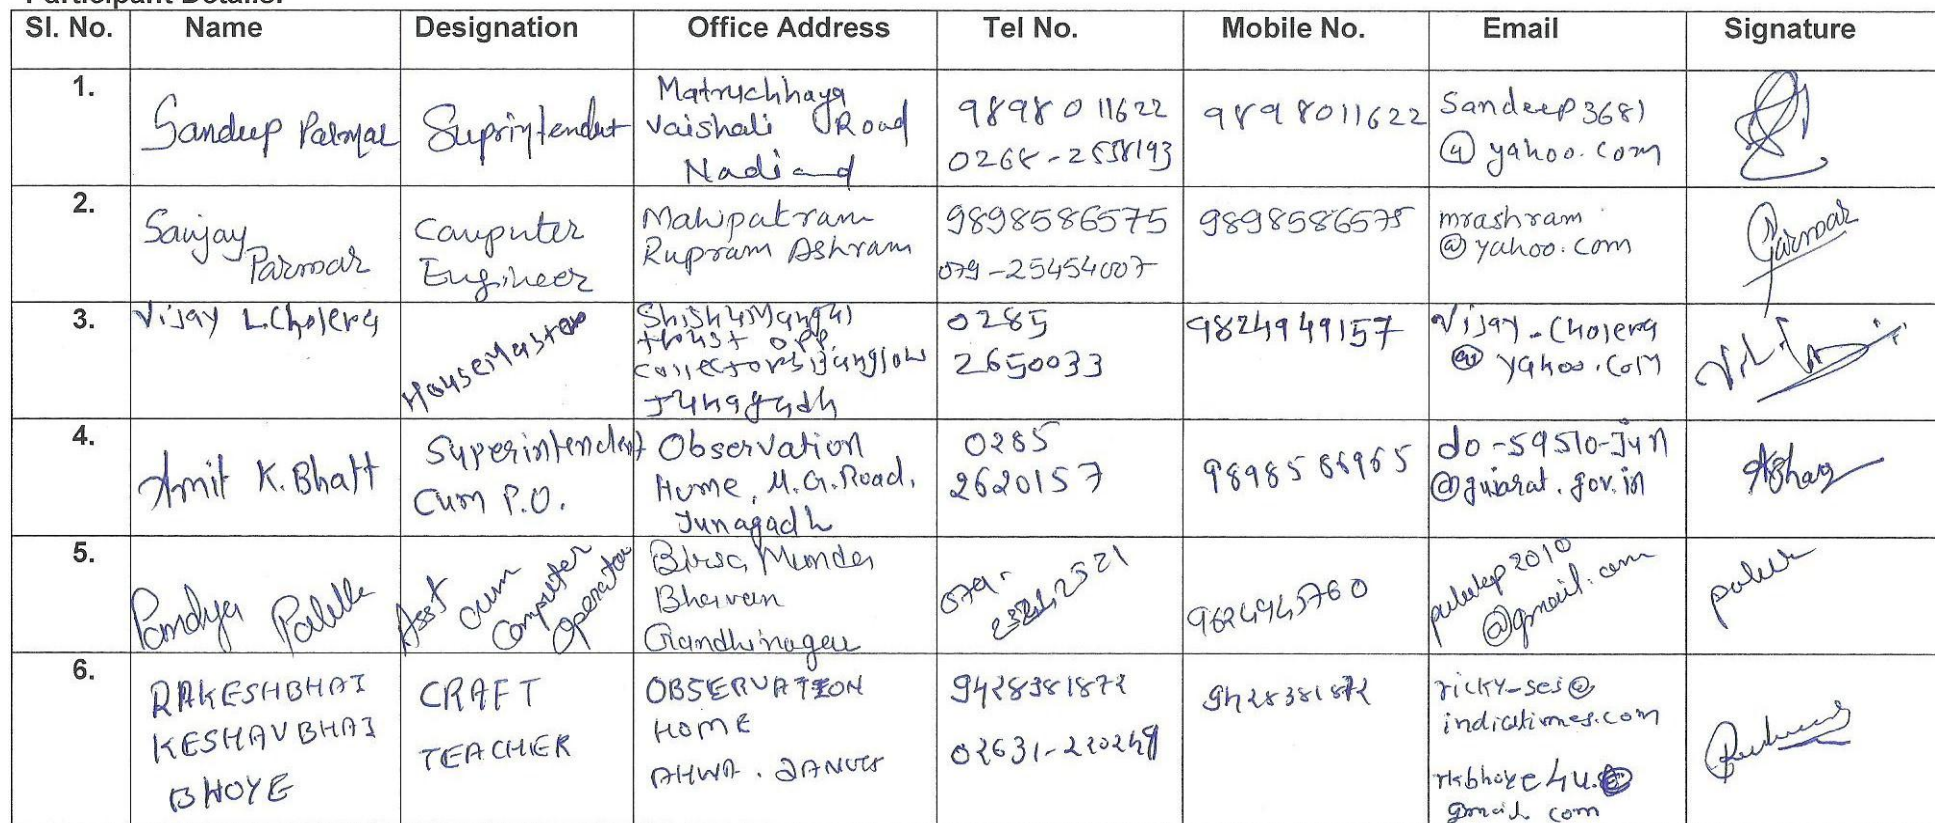 Participant Details:
Sl. No. Name Designation Office Address Tel No. Mobile No. Email Signature
1.
Sandeep Parmar
Suprintendent
Matruchhaya
Vaishali Road
Nadiad
98980 11622
9898011622
Sandeep3681
@yahoo.com
2.
Sanjay
Parmar
Computer
Engineer
Mahipatram
Rupram Ashram
9898586575
079-25454007
9898586575
mrashram
@yahoo.com
Parmar
3.
Vijay L.Cholera
HouseMaster
ShishuMangal
trust opp.
collectors Bunglow
Junagadh
0285
2650033
9824949157
Vijay-Cholera
@ yahoo.com
4.
Amit K.Bhatt
Superintendent
Cum P.O.
Observation
Home, M.G.Road,
Junagadh
0285
2620157
do-sgsto-Jun
@gujarat.gov.in
5.
Pandya
Asst
cum
Computer
Operator
Birsa Munda
Bhavan
Gandhinagar
079-
9624945760
@gmail.com
6.
RAKESHBHAI
KESHAVBHAI
BHOYE
CRAFT
TEACHER
OBSERVATION
HOME
AHWA.
9428381872
9428381872
ricky-ses@
indiatimes.com
rkbhoye4u.@
gmail.com